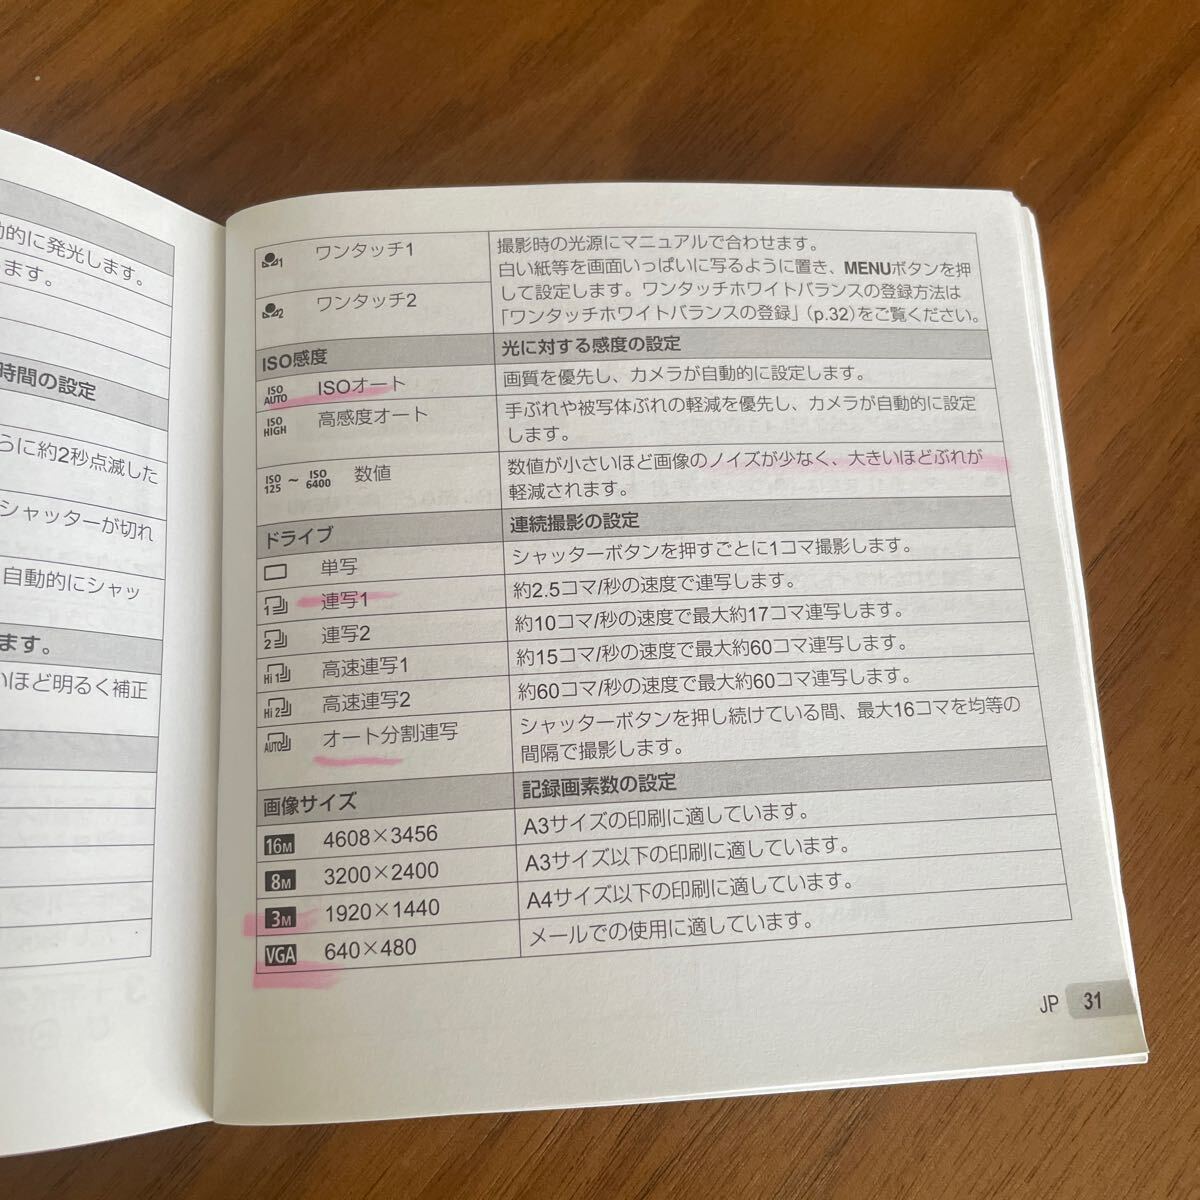 動的に発光します。
ます。
時間の設定
らに約2秒点滅した
シャッターが切れ
自動的にシャッ
ます。
いほど明るく補正
1 ワンタッチ1
2 ワンタッチ2
撮影時の光源にマニュアルで合わせます。
白い紙等を画面いっぱいに写るように置き、MENUボタンを押
して設定します。ワンタッチホワイトバランスの登録方法は
「ワンタッチホワイトバランスの登録」(p.32)をご覧ください。
ISO感度 光に対する感度の設定
ISO AUTO ISOオート 画質を優先し、カメラが自動的に設定します。
ISO HIGH 高感度オート 手ぶれや被写体ぶれの軽減を優先し、カメラが自動的に設定
します。
ISO 125 ~ ISO 6400 数値 数値が小さいほど画像のノイズが少なく、大きいほどぶれが
軽減されます。
ドライブ 連続撮影の設定
単写 シャッターボタンを押すごとに1コマ撮影します。
1 連写1 約2.5コマ/秒の速度で連写します。
2 連写2 約10コマ/秒の速度で最大約17コマ連写します。
Hi 1 高速連写1 約15コマ/秒の速度で最大約60コマ連写します。
Hi 2 高速連写2 約60コマ/秒の速度で最大約60コマ連写します。
AUTO オート分割連写 シャッターボタンを押し続けている間、最大16コマを均等の
間隔で撮影します。
画像サイズ 記録画素数の設定
16M 4608×3456 A3サイズの印刷に適しています。
8M 3200×2400 A3サイズ以下の印刷に適しています。
3M 1920×1440 A4サイズ以下の印刷に適しています。
VGA 640×480 メールでの使用に適しています。
JP 31